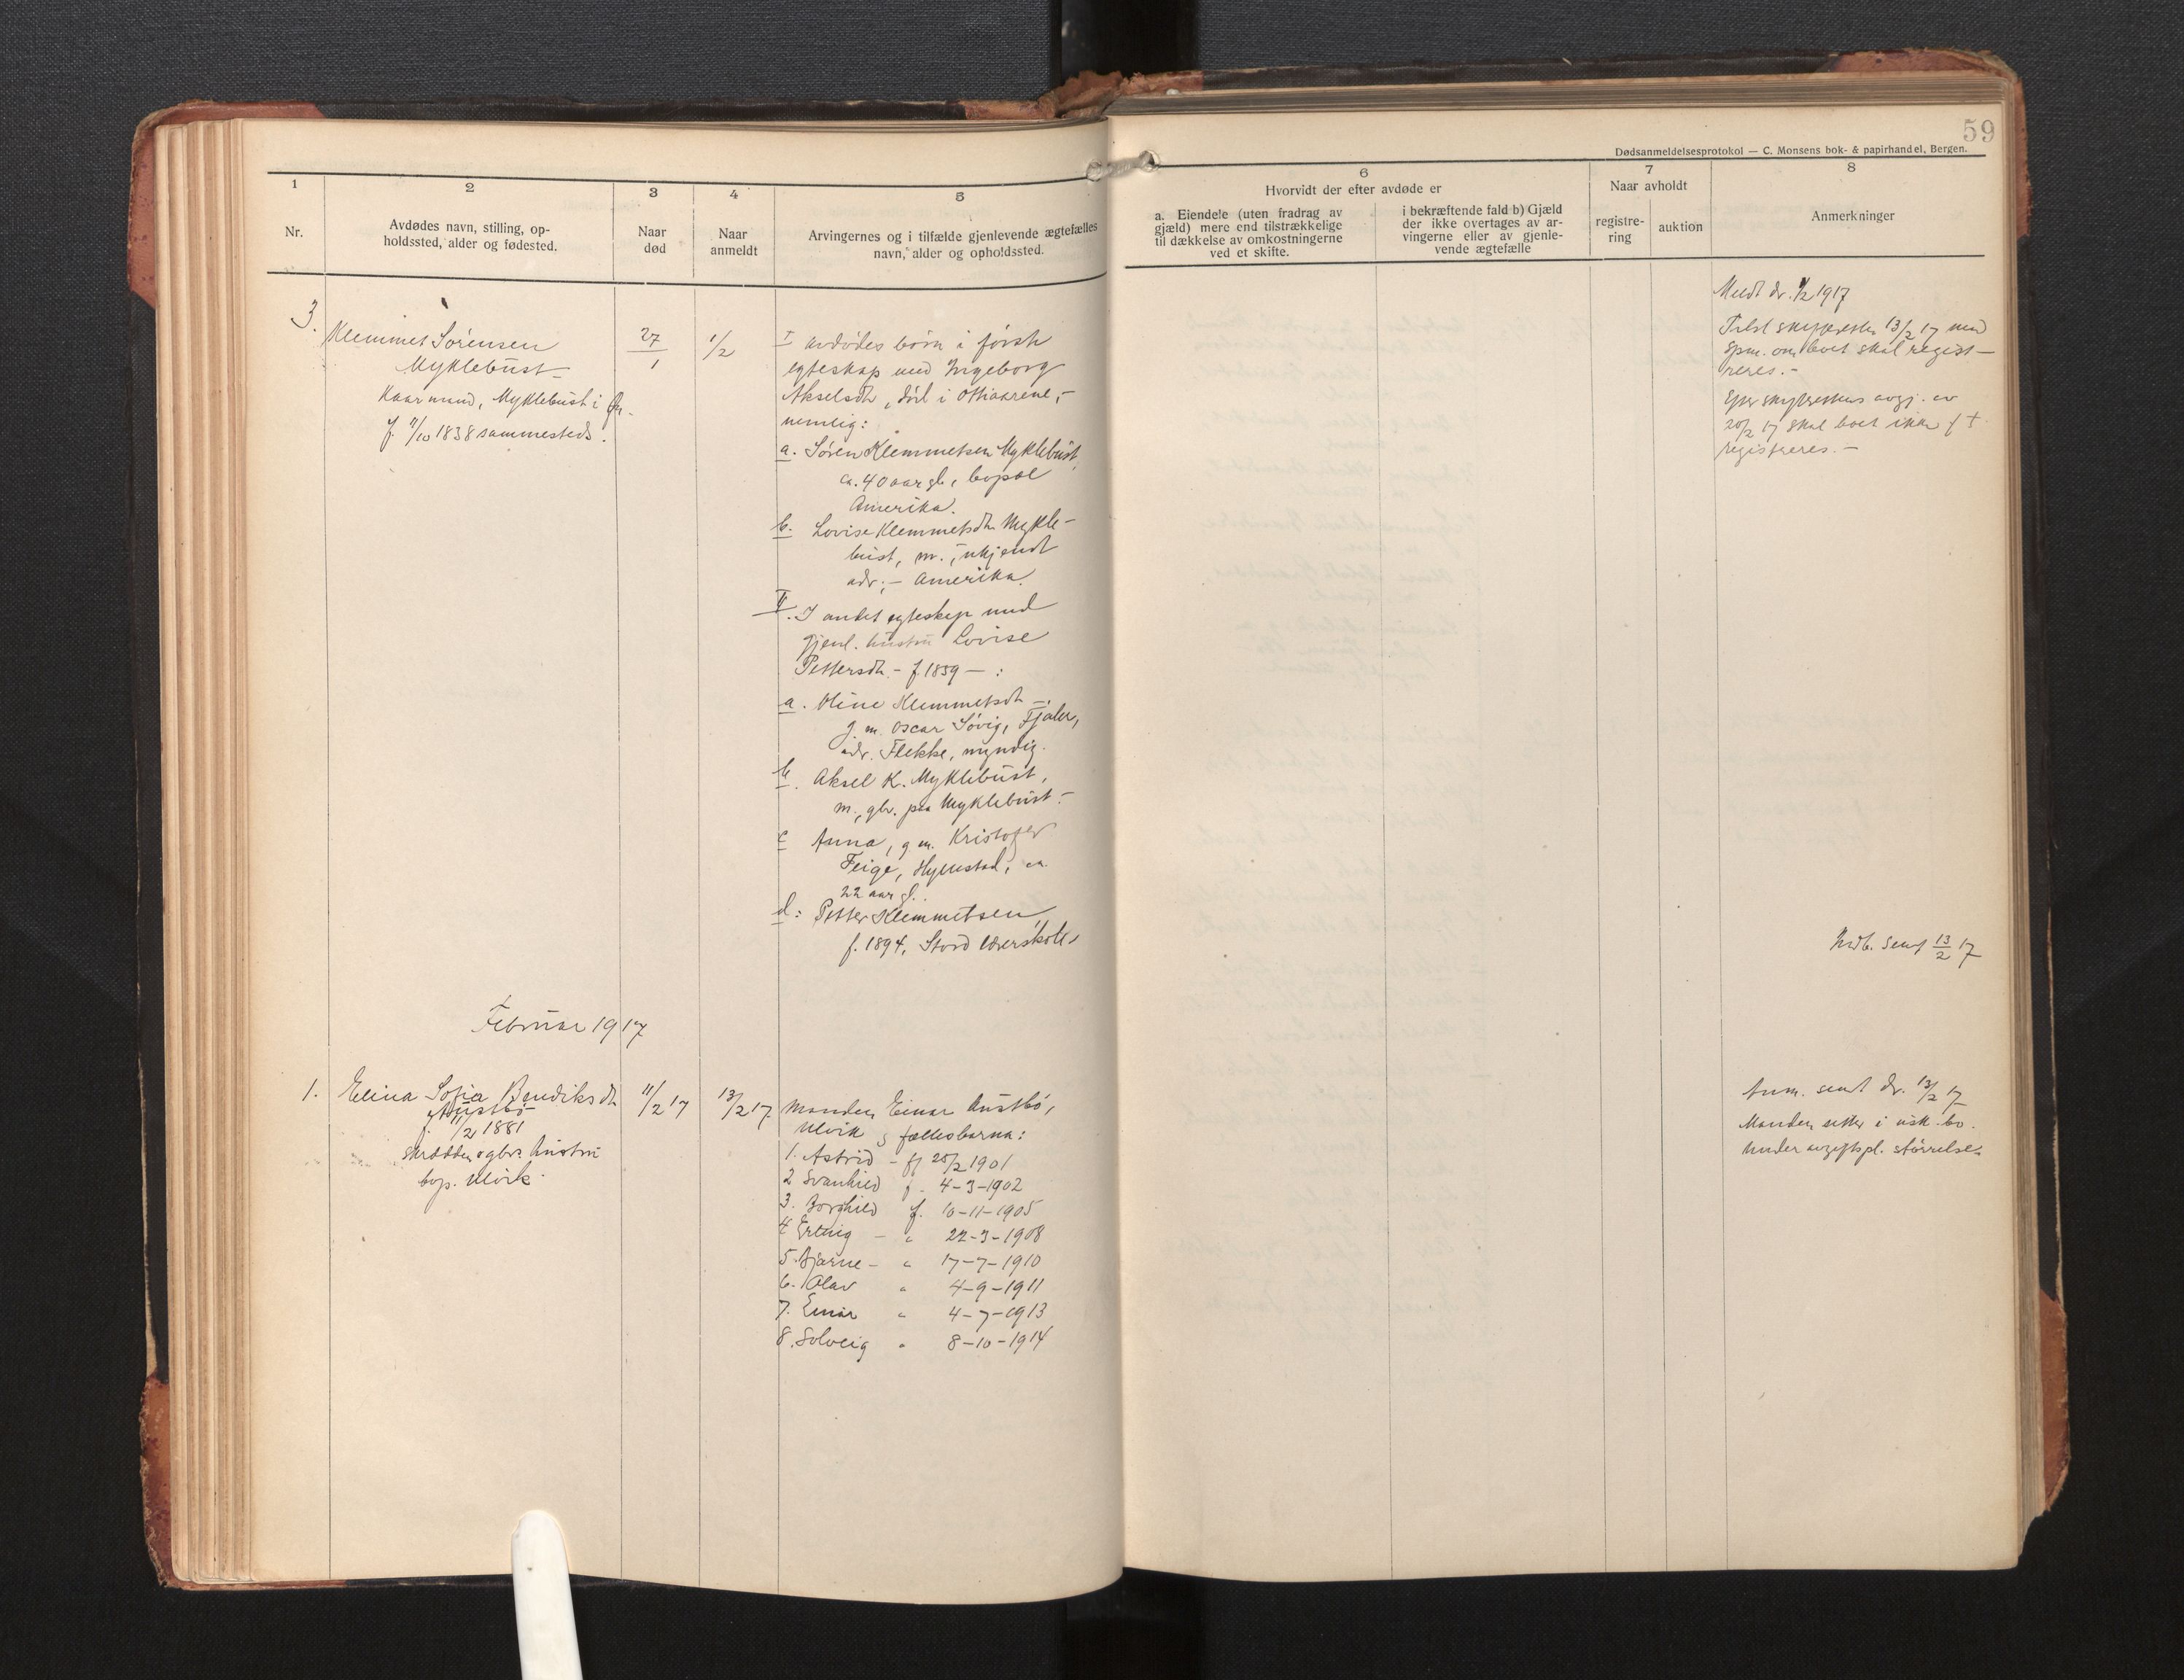 59
Dødsanmeldelsesprotokol — C. Monsens bok- & papirhandel, Bergen.
1
Nr.
2
Avdødes navn, stilling, op-
holdssted, alder og fødested.
3
Naar
død
4
Naar
anmeldt
5
Arvingernes og i tilfælde gjenlevende ægtefælles
navn, alder og opholdssted.
6
Hvorvidt der efter avdøde er
a. Eiendele (uten fradrag av
gjæld) mere end tilstrækkelige
til dækkelse av omkostningerne
ved et skifte.
i bekræftende fald b) Gjæld
der ikke overtages av ar-
vingerne eller av gjenle-
vende ægtefælle
7
Naar avholdt
registre-
ring
auktion
8
Anmerkninger
3.
Klemmet Sørensen
Myklebust
Kaarmand, Myklebust i
f. 11/10 1838 sammesteds.
27/1
1/2
I avdødes børn i første
egteskap med Ingeborg
Akselsdtr, død i ottiaarene,-
nemlig:
a. Søren Klemmetsen Myklebust,
ca. 40 aar gl, bopæl
Amerika.
b. Lovise Klemmetsdtr Mykle-
bust, m., ukjendt
adr.- Amerika.
II. I andet egteskap med
gjenl. hustru Lovise
Pettersdtr - f. 1859 - :
a. Oline Klemmetsdtr -
g. m. Oscar Søvig, Fjaler,
adr. Flekke, myndig.
b. Aksel K. Myklebust,
m., gbr. paa Myklebust.-
c Anna, g m. Kristofer
Feige, Hyllestad, ca.
22 aar g.
d: Petter Klemmetsen
f. 1894, Stord lærerskole
Meldt dr. 1/2 1917
13/2 17 med
spm. om boet skal regist-
reres.-
Efter avgj. av
20/2 17 skal boet ikke
registreres.-
sent 13/2 17
Februar 1917
1.
Elina Sofia Bendiksdtr
Austbø
f. 11/2 1881
skrædder og gbr. hustru
bop. Ulvik.
11/2 17
13/2 17
Manden Einar Austbø,
Ulvik og fællesbarna:
1. Astrid - f 25/2 1901
2 Svanhild f. 4-3-1902
3. Borghild f. 10-11-1905
4 Erling - " 22-3-1908
5. Bjarne - " 17-7-1910
6. Olav " 4-9-1911
7. Einar " 4-7-1913
8. Solveig " 8-10-1914
Anm. sent dr. 13/2 17
Manden sitter i usk. bo.
Under avgiftspl. størrelse.